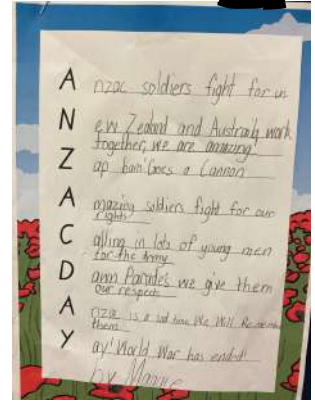 A nzac soldiers fight for us
N ew Zealand and Australia work
together, we are amazing
Z ap bam Goes a Cannon
A mazing soldiers fight for our
rights
C alling in lots of young men
for the Army
D awn Parades we give them
our respects
A nzac is a sad time We Will Remember
them
Y ay! World War has ended!
by